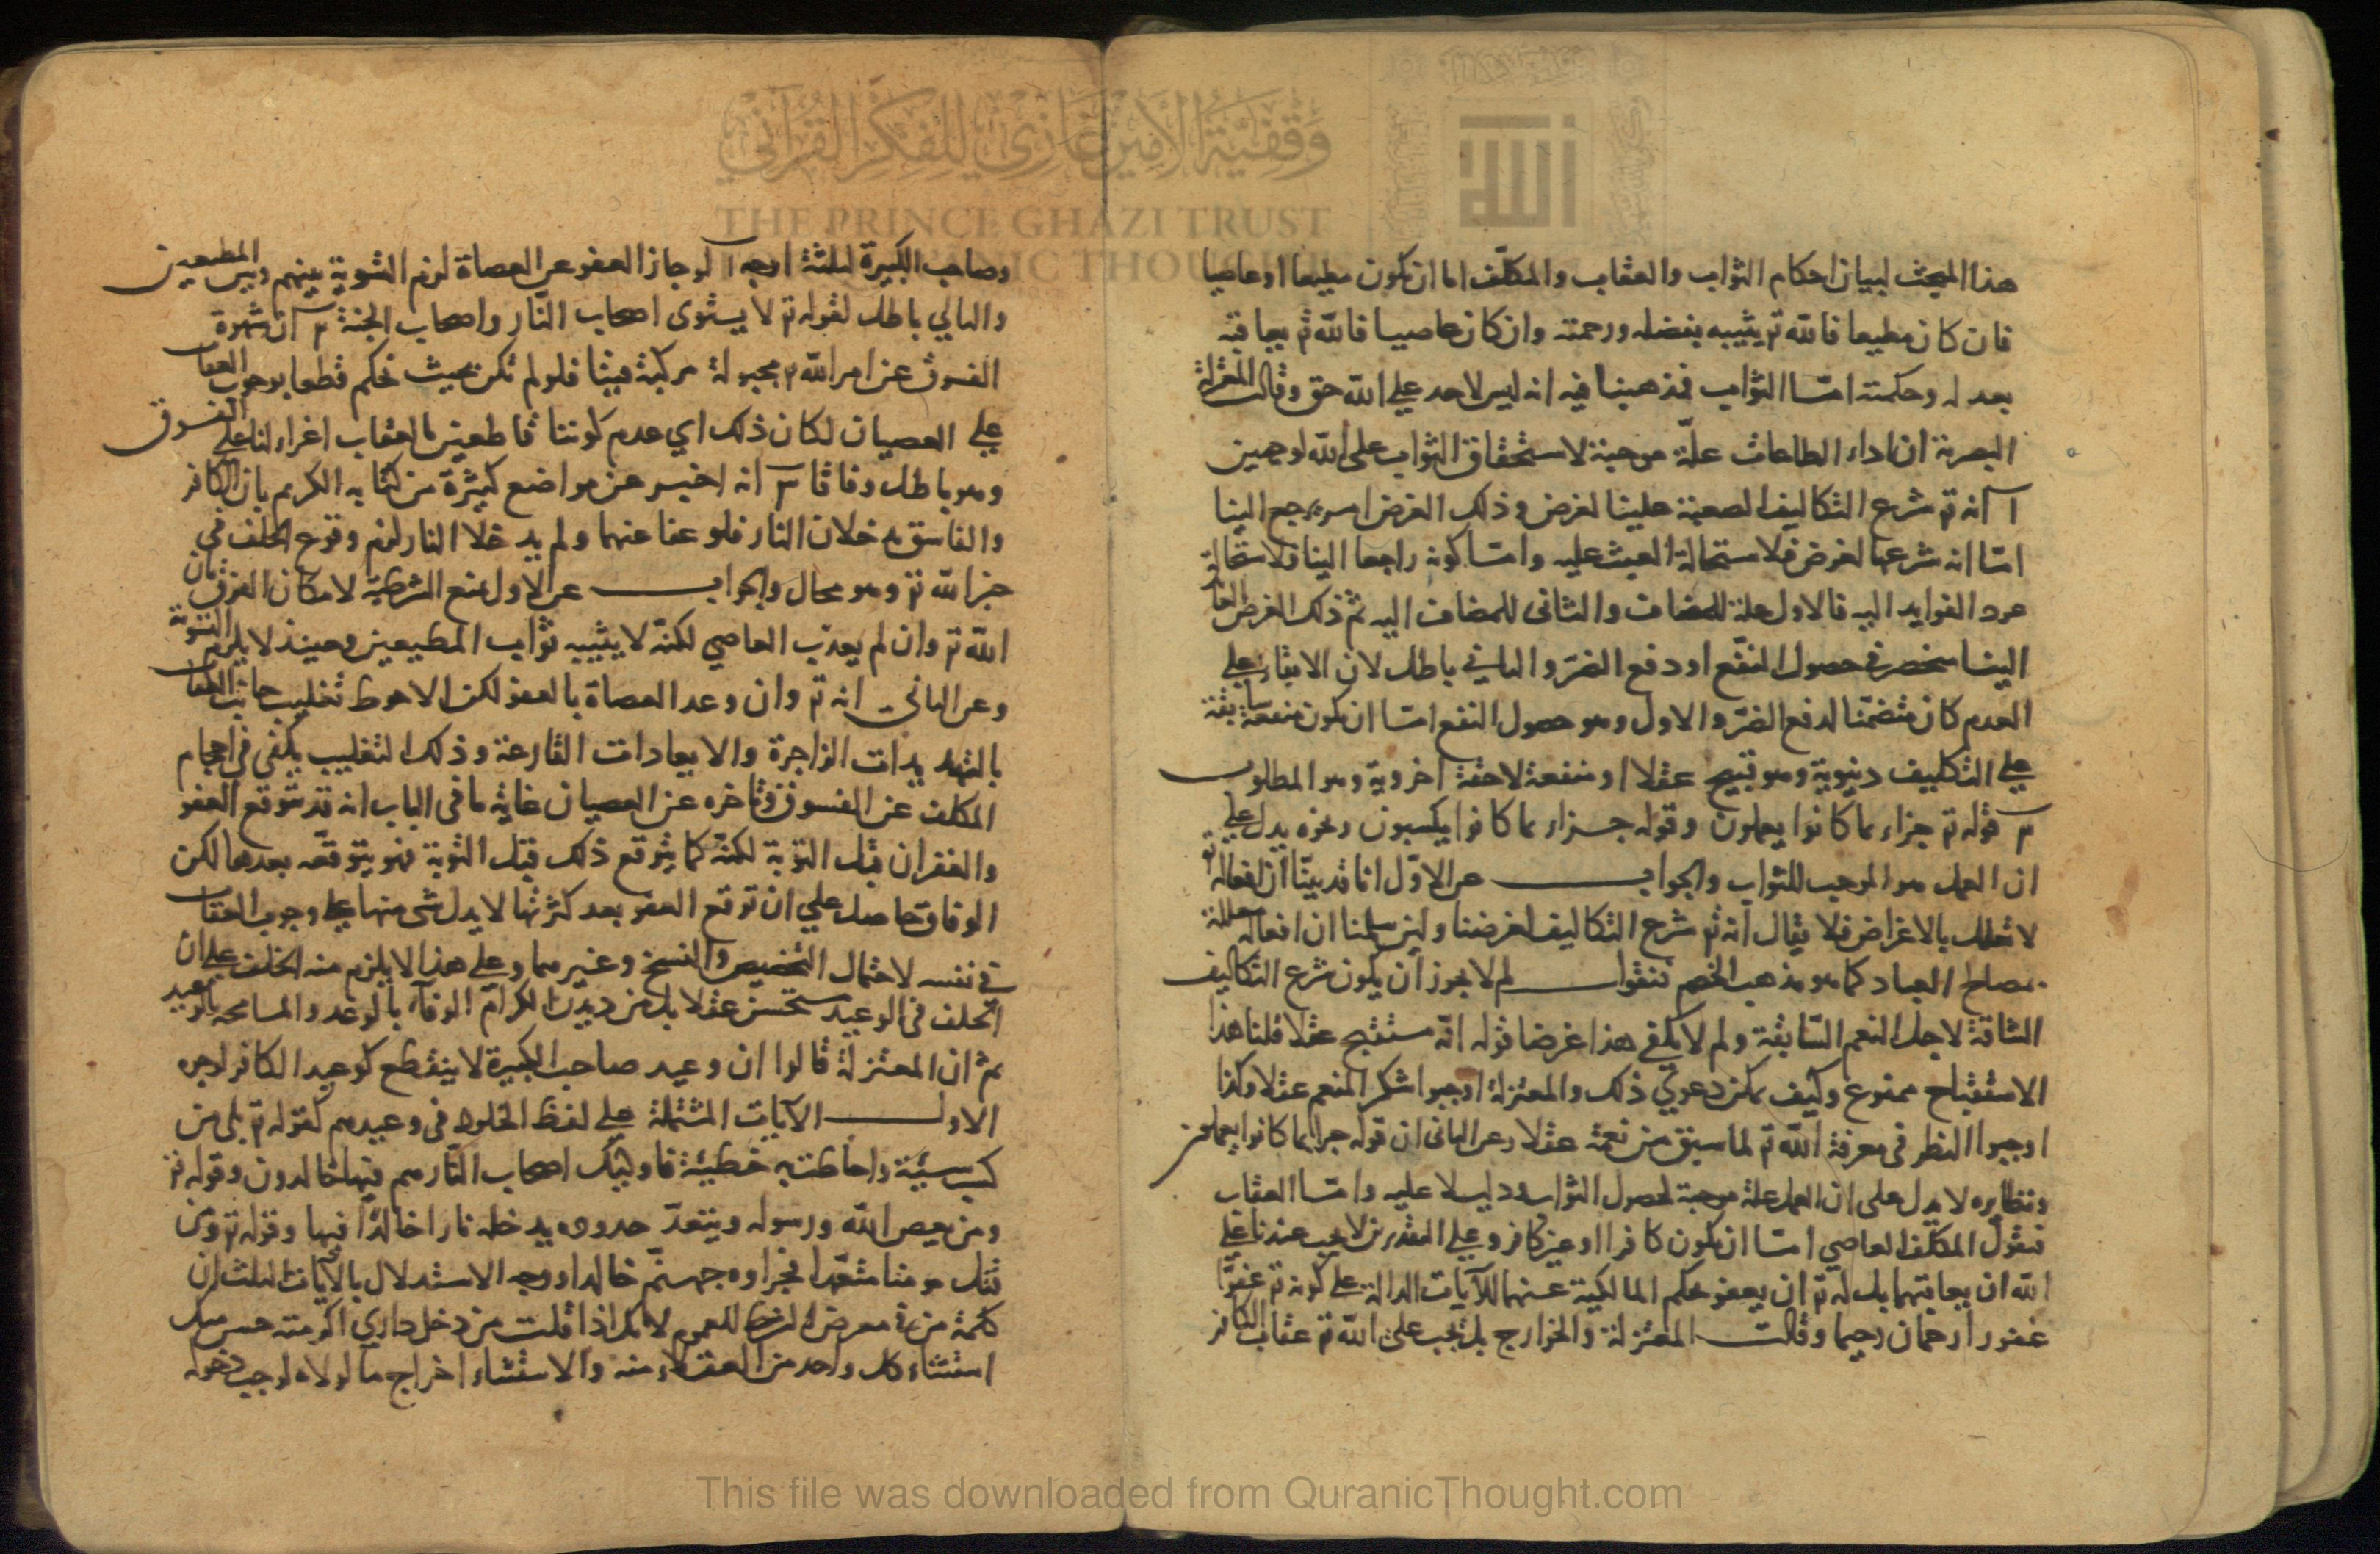 هذا المبحث لبيان احكام الثواب والعقاب والمكلف اما ان يكون مطيعا او عاصيا
فان كان مطيعا فالله تم يثيبه بفضله ورحمته وان كان عاصيا فالله تم يعاقبه
بعدله وحكمته امّا الثواب فمذهبنا فيه انه ليس لاحد علي الله حق وقالت المعتزلة
البصرية ان اداء الطاعات علّة موجبة لاستحقاق الثواب على الله لوجهين
آ انه تم شرع التكاليف الصعبة علينا لغرض وذلك الغرض امر يرجع الينا
امّا انه شرعها لغرض فلاستحالة العبث عليه وامّا كونه راجعا الينا فلاستحالة
عود الفوايد اليه فالاول علة للمضاف والثانى للمضاف اليه ثم ذلك الغرض العائد
الينا منحصر في حصول النفع او دفع الضرّ والثاني باطل لان الابقاء علي
العدم كان متضمّنا لدفع الضرّ والاول وهو حصول النفع امّا ان يكون منفعة سابقة
علي التكليف دنيوية وهو قبيح عقلا او منفعة لاحقة اخروية وهو المطلوب
قوله تم جزاء بما كانوا يعملون وقوله جزاء بما كانوا يكسبون ونحوه يدل علي
ان العمل هو الموجب للثواب والجواب عن الاوّل انا قد بيّنّا ان افعاله تم
لا تعلل بالاغراض فلا يقال انه تم شرع التكاليف لغرضنا ولئن سلمنا ان افعاله معللة
بمصالح العباد كما هو مذهب الخصم فنقول لم لا يجوز ان يكون شرع التكاليف
الشاقة لاجل النعم السّابقة ولم لا يكفي هذا غرضا قوله انّه مستقبح عقلا قلنا هذا
الاستقباح ممنوع وكيف يمكن دعوي ذلك والمعتزلة اوجبوا شكر المنعم عقلا وكذا
اوجبوا النظر في معرفة الله تم لما سبق من نعمة عقلا وعن الثانى ان قوله جزاء بما كانوا يعملون
ونظايره لا يدل على ان العمل علة موجبة لحصول الثواب ودليلا عليه وامّا العقاب
فنقول المكلف العاصي امّا ان يكون كافرا او غير كافر وعلي التقديرين لا يجب عندنا علي
الله ان يعاقبهما بل له تم ان يعفو بحكم المالكية عنهما للآيات الدالة علي كونه تم عفوّا
غفورا رحمان رحيما وقالت المعتزلة والخوارج بل يجب على الله تم عقاب الكافر
وصاحب الكبيرة لثلثة اوجه آ لو جاز العفو عن العصاة لزم التسوية بينهم وبين المطيعين
والتالي باطل لقوله تم لا يستوى اصحاب النّار واصحاب الجنة ان شهوة
الفسوق عن امر الله تم مجبولة مركبة فينا فلو لم نكن بحيث نحكم قطعا بوجوب العقاب
علي العصيان لكان ذلك اي عدم كوننا قاطعين بالعقاب اغراء لنا على الفسوق
وهو باطل وفاقا انه اخبر عن مواضع كثيرة من كتابه الكريم بان الكافر
والفاسق يدخلان النار فلو عفا عنهما ولم يدخلا النار لزم وقوع الخلف في
خبر الله تم وهو محال والجواب عن الاول بمنع الشرطية لامكان الفرق بان
الله تم وان لم يعذب العاصي لكنّه لا يثيبه ثواب المطيعين وحينئذ لا يلزم التسوية
وعن الثاني انه تم وان وعد العصاة بالعفو لكن الاحوط تغليب جانب العقاب
بالتهديدات الزاجرة والايعادات القارعة وذلك التغليب يكفى في احجام
المكلف عن الفسوق وتاخره عن العصيان غاية ما في الباب انه قد يتوقع العفو
والغفران قبل التوبة لكنّه كما يتوقع ذلك قبل التوبة فهو يتوقعه بعدها لكن
الوفاق حاصل علي ان توقع العفو بعد كثرتها لا يدل شى منها علي وجوب العقاب
في نفسه لاحتمال التخصيص والنسخ وغيرهما وعلي هذا لا يلزم منه الخلف علي ان
الخلف في الوعيد مستحسن عقلا بل من ديدن الكرام الوفاء بالوعد والمسامحة بالوعيد
ثم ان المعتزلة قالوا ان وعيد صاحب الكبيرة لا ينقطع كوعيد الكافر لوجوه
الاول الآيات المشتملة علي لفظ الخلود في وعيدهم كقوله تم بلى من
كسب سيئة واحاطت به خطيئة فاوليك اصحاب النّار هم فيها خالدون وقوله تم
ومن يعص الله ورسوله ويتعدّ حدوده يدخله نارا خالدًا فيها وقوله تم ومن
يقتل مومنا متعمّدا فجزاوه جهنّم خالدا ووجه الاستدلال بالآيات الثلث ان
كلمة من في معرض الشرط للعموم لانك اذا قلت من دخل داري اكرمته حسن منك
استثناء كل واحد من العقلاء منه والاستثناء اخراج ما لولاه لوجب دخوله
وقفية الأمير غازي للفكر القرآني
THE PRINCE GHAZI TRUST
This file was downloaded from QuranicThought.com